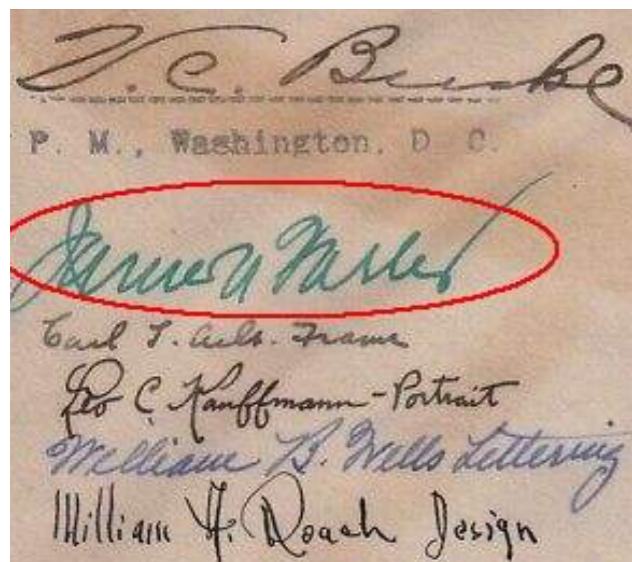 V. C. Burke
P. M., Washington, D C.
James A Farley
Carl T. Arlt. Frame
Leo C. Kauffmann-Portrait
William B. Wells Lettering
William A. Roach Design